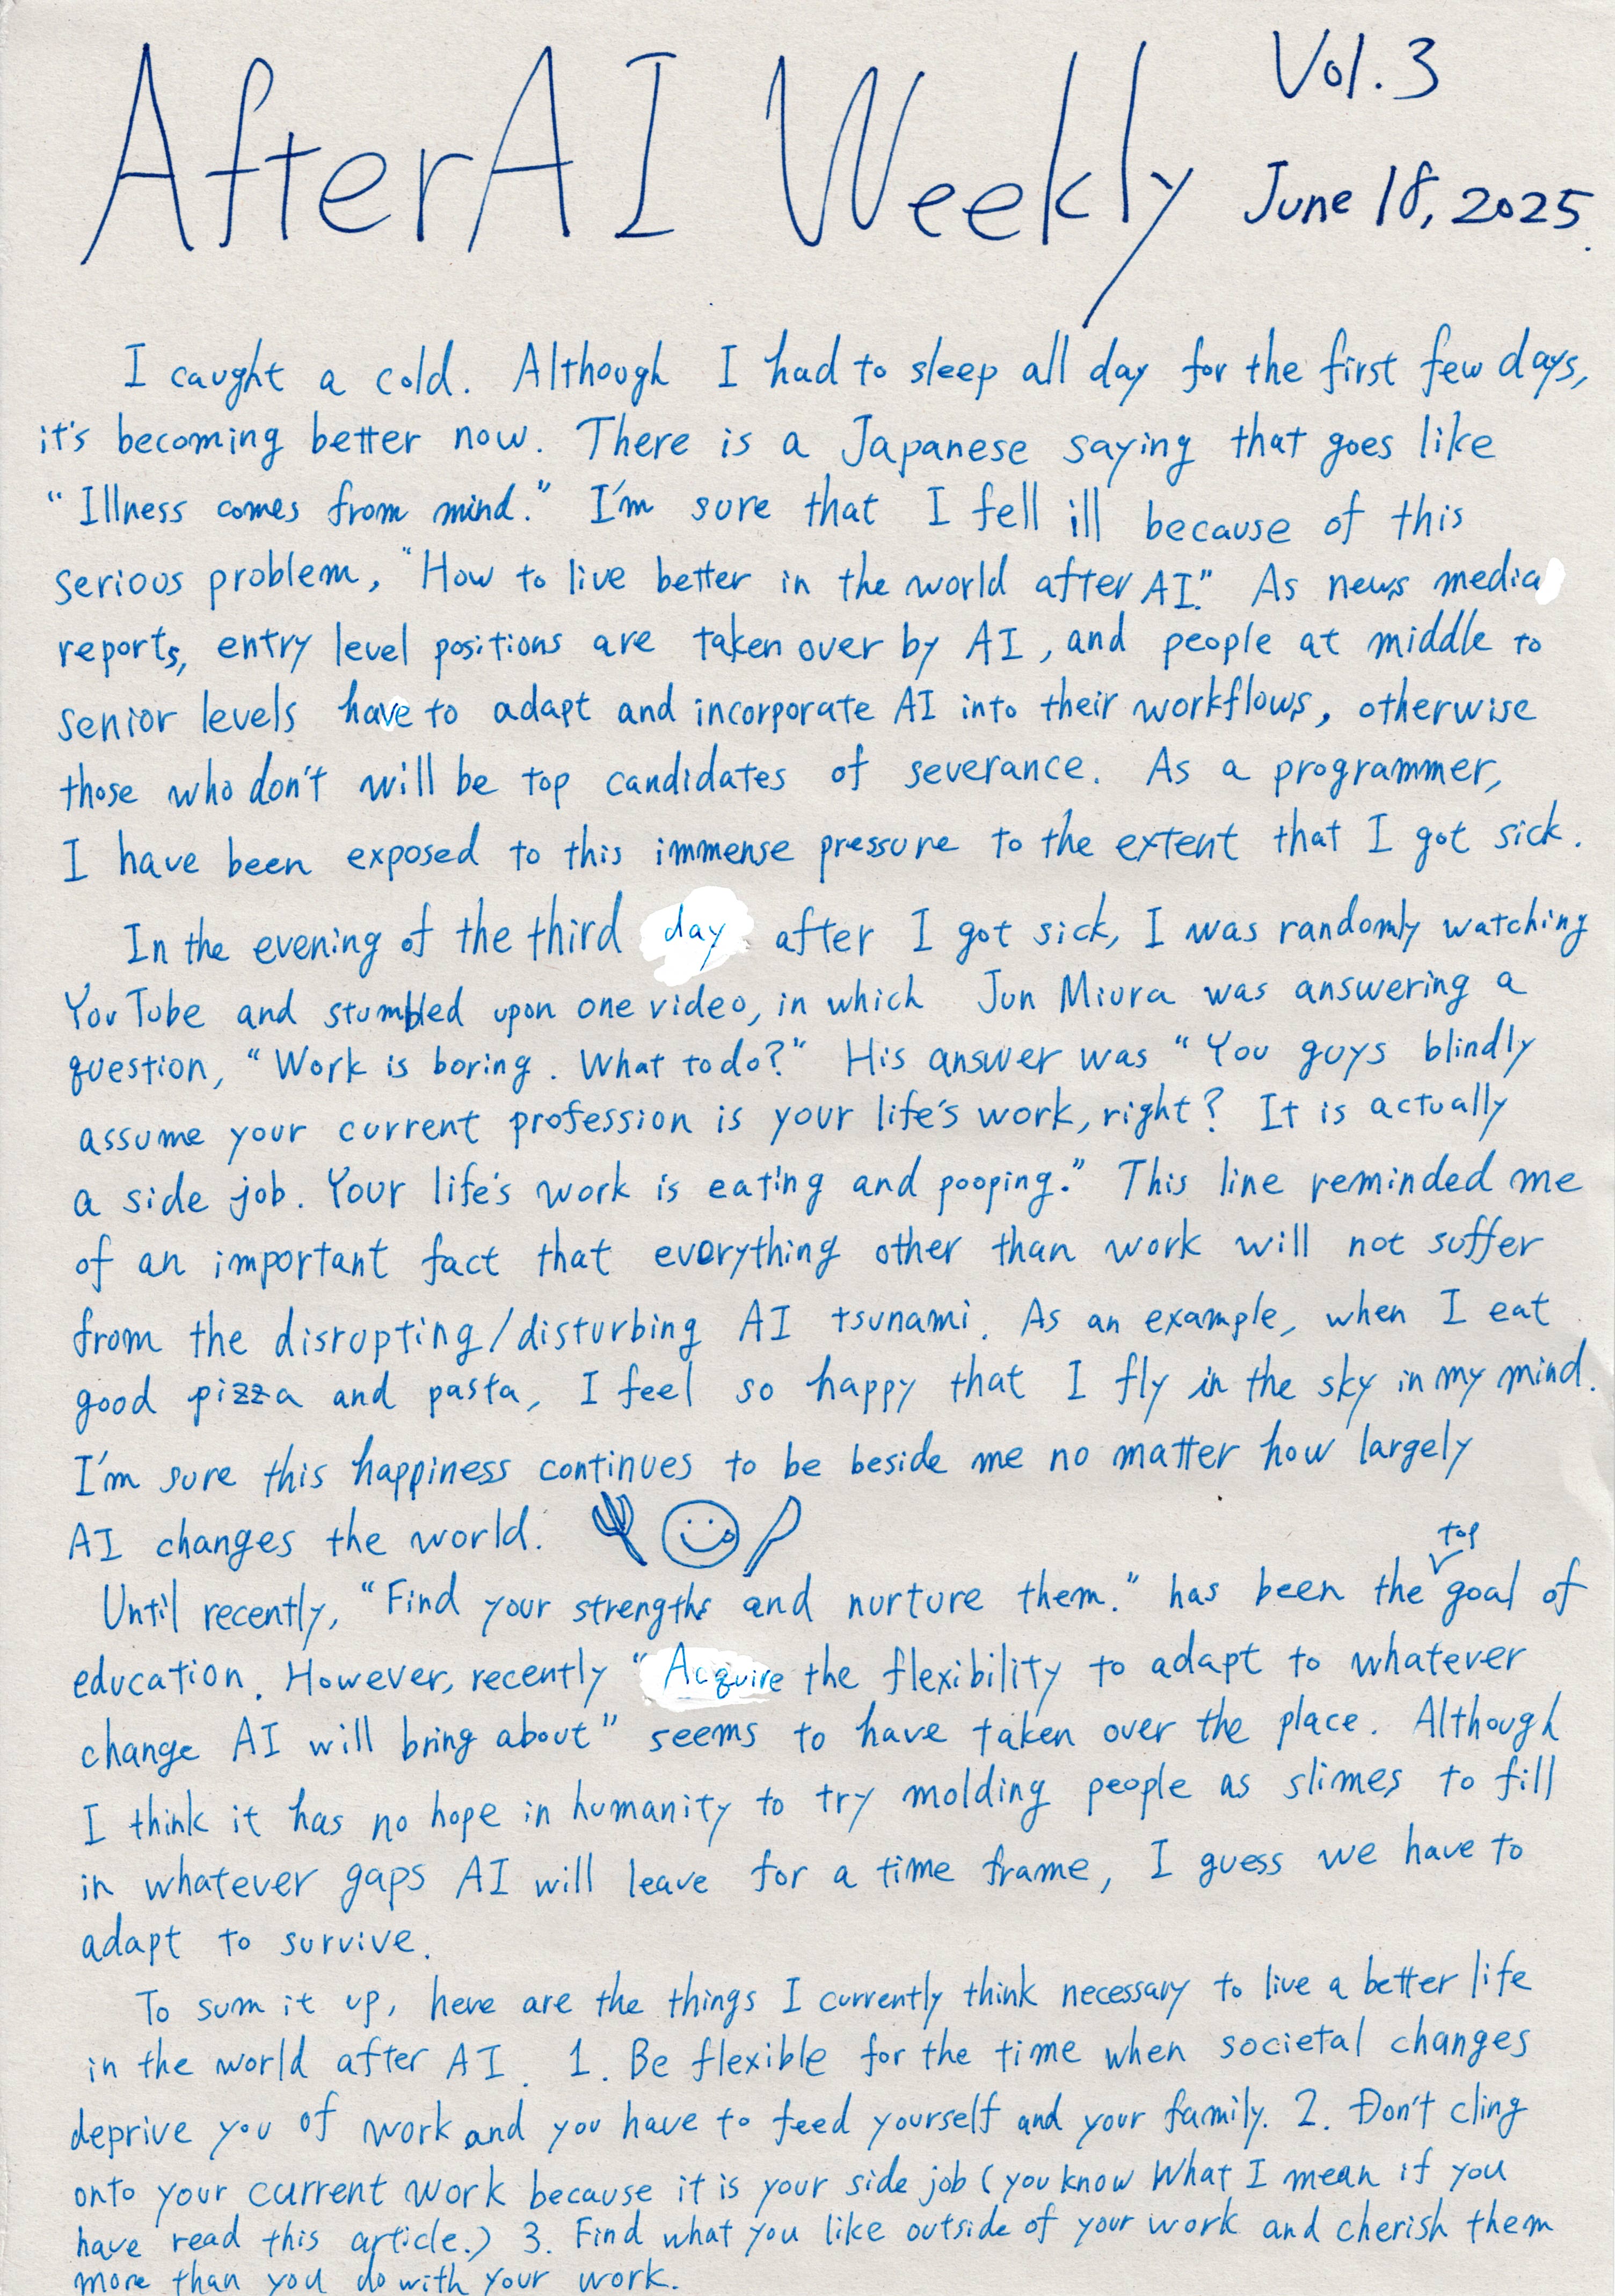 AfterAI Weekly
Vol. 3
June 18, 2025.
I caught a cold. Although I had to sleep all day for the first few days,
it's becoming better now. There is a Japanese saying that goes like
"Illness comes from mind." I'm sure that I fell ill because of this
serious problem, "How to live better in the world after AI." As news media
reports, entry level positions are taken over by AI, and people at middle to
senior levels have to adapt and incorporate AI into their workflows, otherwise
those who don't will be top candidates of severance. As a programmer,
I have been exposed to this immense pressure to the extent that I got sick.
In the evening of the third day after I got sick, I was randomly watching
YouTube and stumbled upon one video, in which Jun Miura was answering a
question, "Work is boring. What to do?" His answer was "You guys blindly
assume your current profession is your life's work, right? It is actually
a side job. Your life's work is eating and pooping." This line reminded me
of an important fact that everything other than work will not suffer
from the disrupting/disturbing AI tsunami. As an example, when I eat
good pizza and pasta, I feel so happy that I fly in the sky in my mind.
I'm sure this happiness continues to be beside me no matter how largely
AI changes the world.
Until recently, "Find your strengths and nurture them." has been the top goal of
education. However, recently "Acquire the flexibility to adapt to whatever
change AI will bring about" seems to have taken over the place. Although
I think it has no hope in humanity to try molding people as slimes to fill
in whatever gaps AI will leave for a time frame, I guess we have to
adapt to survive.
To sum it up, here are the things I currently think necessary to live a better life
in the world after AI. 1. Be flexible for the time when societal changes
deprive you of work and you have to feed yourself and your family. 2. Don't cling
onto your current work because it is your side job (you know What I mean if you
have read this article.) 3. Find what you like outside of your work and cherish them
more than you do with your work.